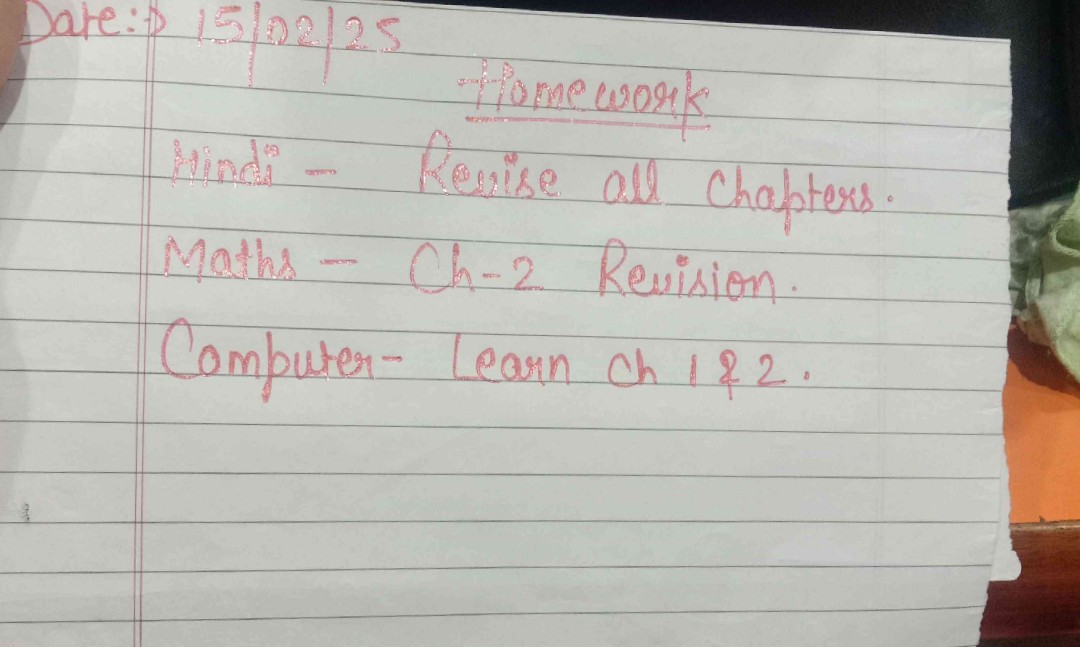 Date:→ 15/02/25
Homework
Hindi - Revise all Chapters.
Maths - Ch-2 Revision.
Computer- Learn Ch 1 & 2.